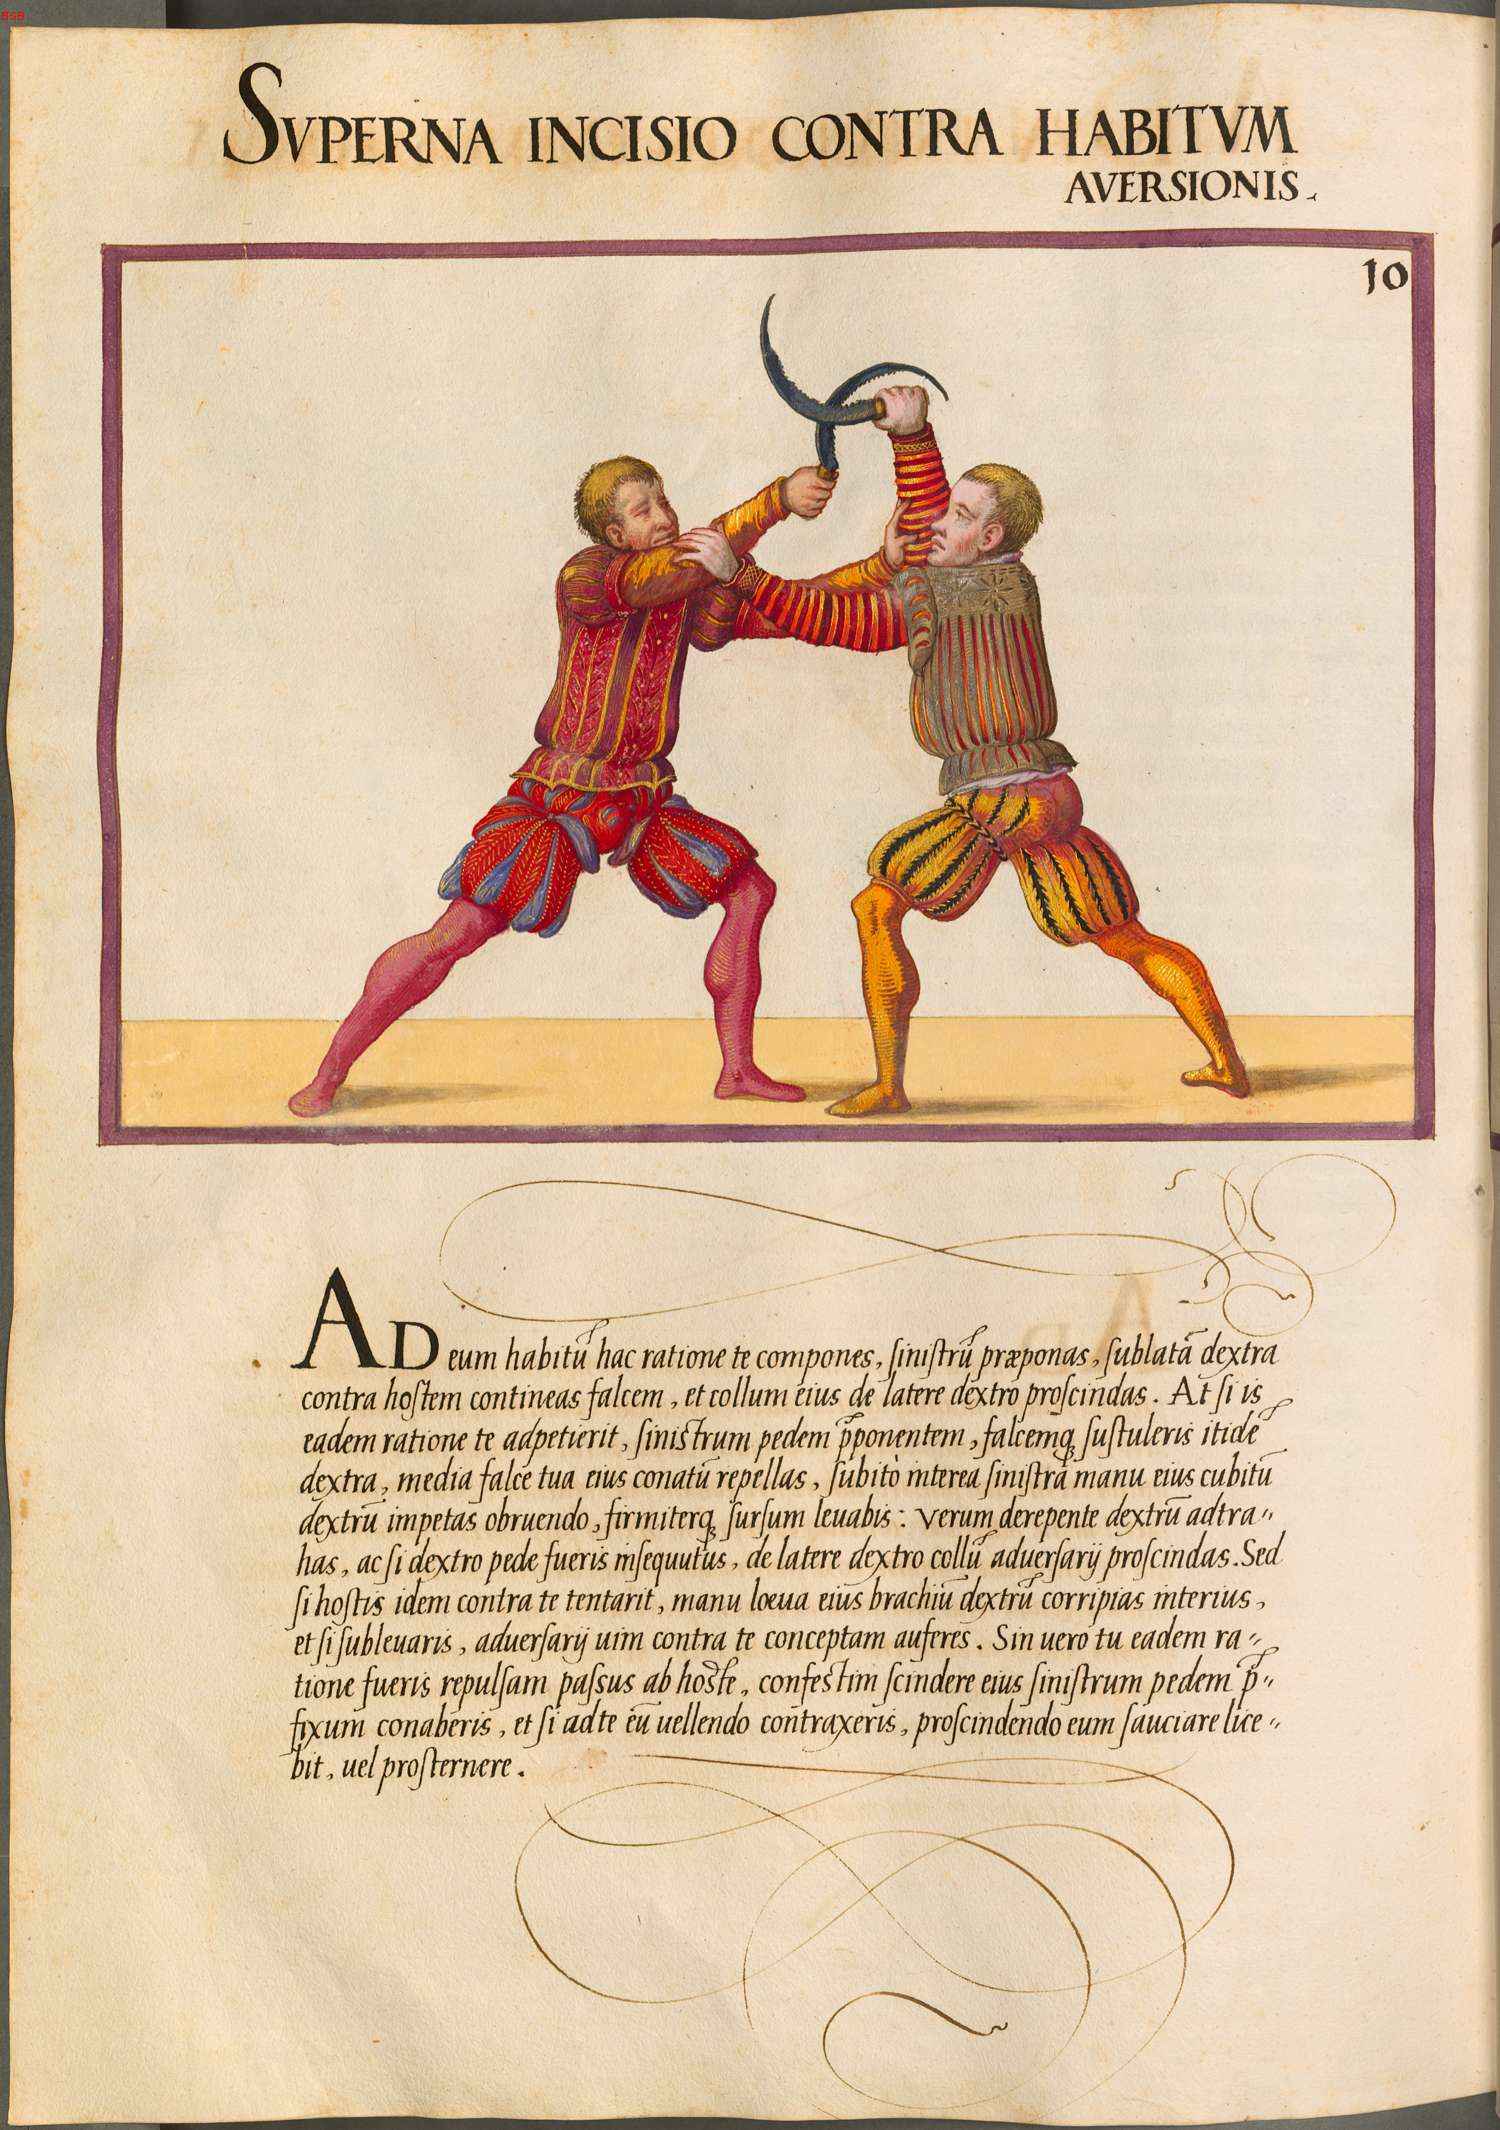 BSB
SVPERNA INCISIO CONTRA HABITVM
AVERSIONIS.
10
AD eum habitū hac ratione te compones, siniſtrū præponas, sublatā dextra
contra hoſtem contineas falcem, et collum eius de latere dextro proſcindas. At ſi is
eadem ratione te adpetierit, ſinistrum pedem p̄ponentem, falcemq̨ ſuſtuleris itidē
dextra, media falce tua eius conatū repellas, ſubitò interea ſiniſtrā manu eius cubitū
dextrū impetas obruendo, firmiterq̨ ſurſum leuabis: verum derepente dextrū adtra〃
has, ac ſi dextro pede fueris inſequutus, de latere dextro collū aduerſarij proſcindas. Sed
ſi hoſtis idem contra te tentarit, manu lœua eius brachiū dextrū corripias interius,
et ſi ſubleuaris, aduerſarij uim contra te conceptam auferes. Sin uero tu eadem ra〃
tione fueris repulſam paſſus ab hoste, confestim ſcindere eius ſiniſtrum pedem p̄〃
fixum conaberis, et ſi ad te eū uellendo contraxeris, proſcindendo eum ſauciare lice〃
bit, uel proſternere.